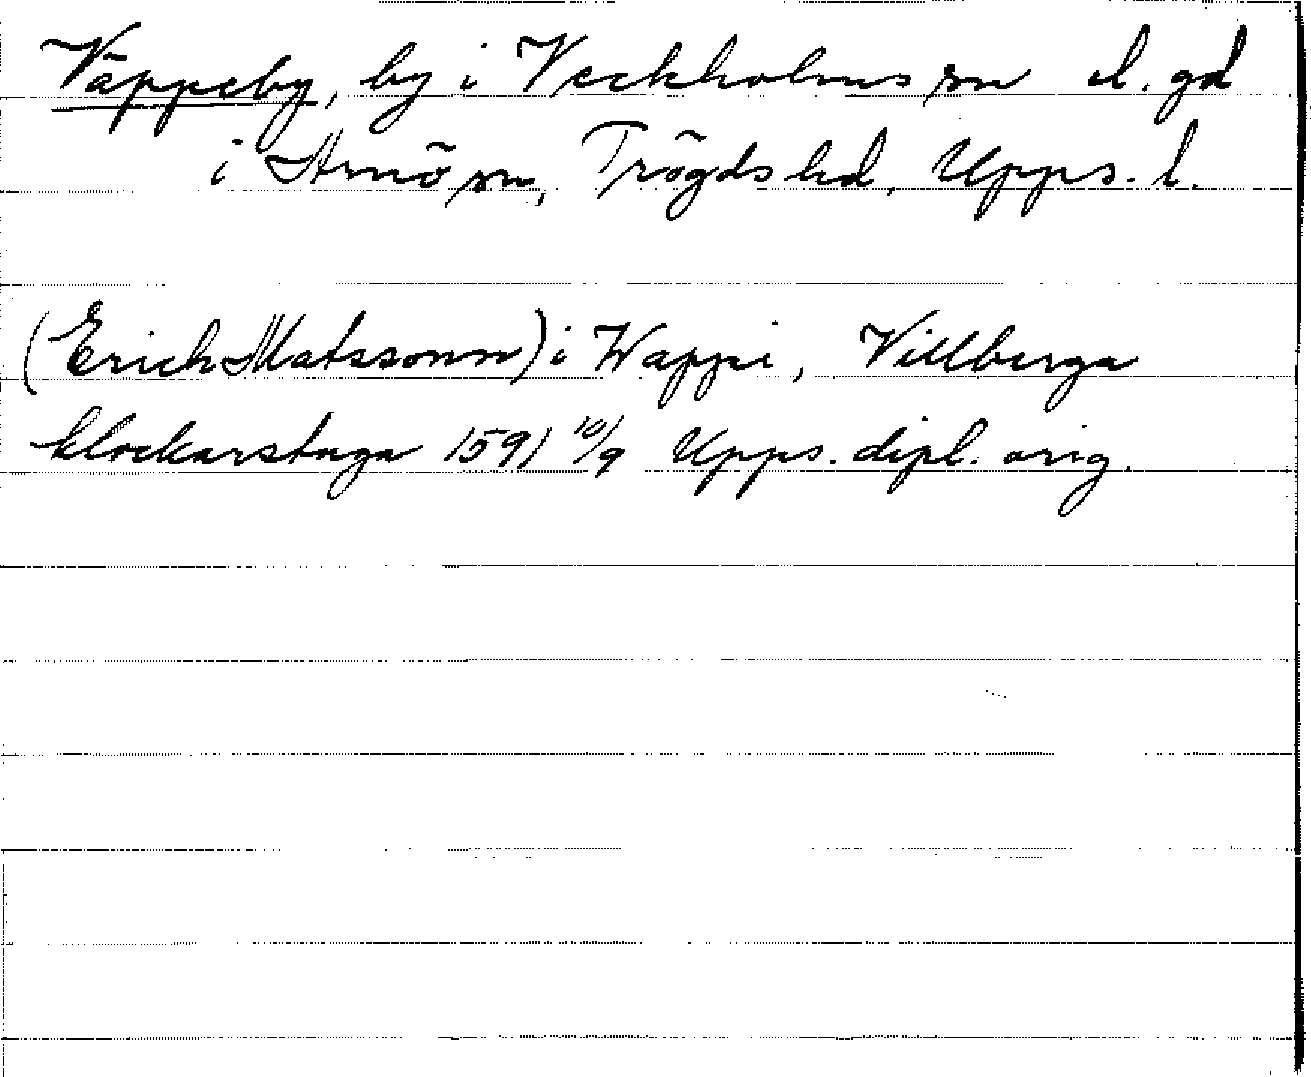 Väppeby, by i Veckholms sn el. gd
i Arnö sn, Trögds hd, Upps. l.
(Erich Matssonn) i Wappi, Villberga
klockarstuga 1591 10/9 Upps. dipl. orig.